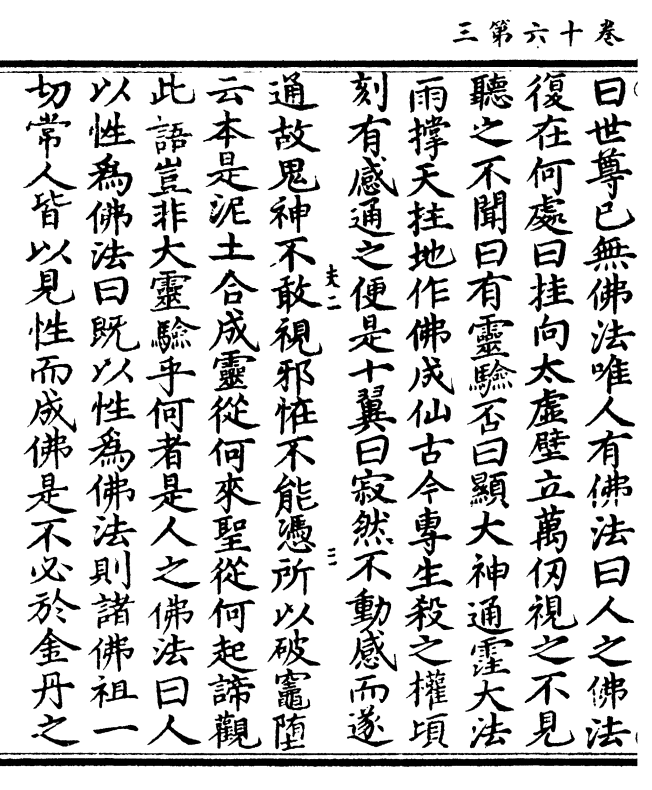 卷十六第三
曰世尊已無佛法唯人有佛法曰人之佛法
復在何處曰挂向太虛壁立萬仞視之不見
聽之不聞曰有靈驗否曰顯大神通霔大法
雨撑天拄地作佛成仙古今專生殺之權頃
刻有感通之便是十翼曰寂然不動感而遂
通故鬼神不敢視邪恠不能憑所以破竈堕
云本是泥土合成靈從何來聖從何起諦觀
此語豈非大靈驗乎何者是人之佛法曰人
以性爲佛法曰既以性爲佛法則諸佛祖一
切常人皆以見性而成佛是不必於金丹之